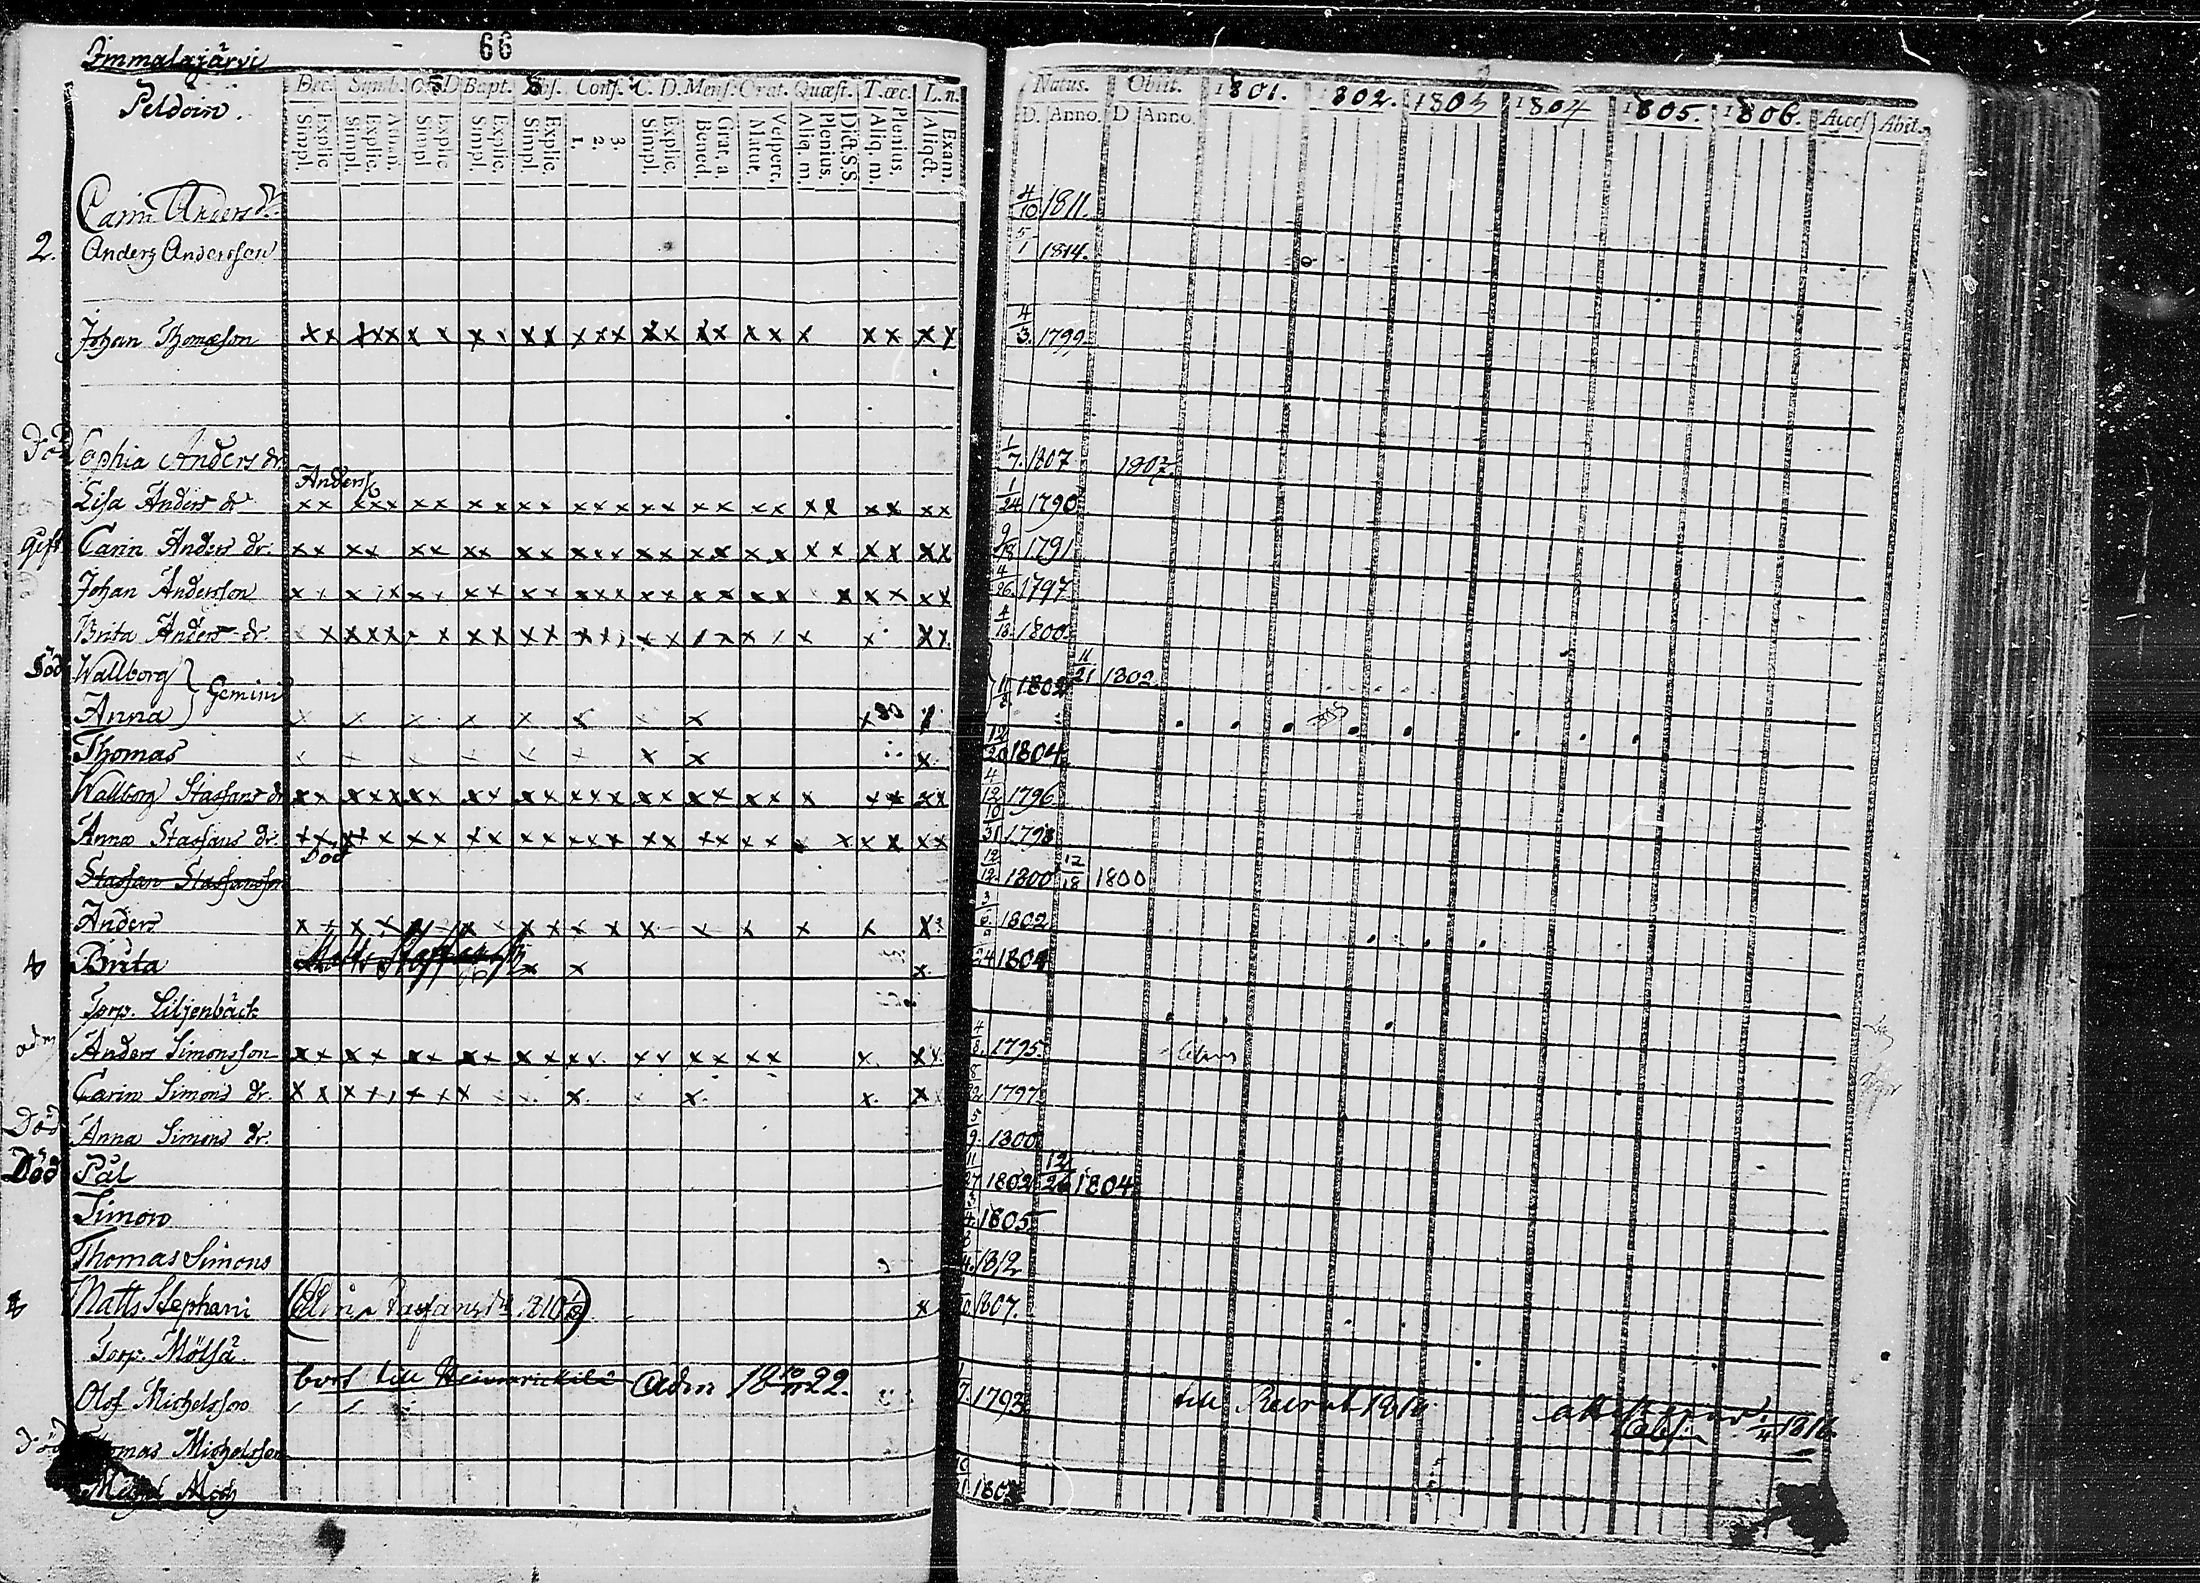 Immalajärvi
66
Peldoin.
Dec. Simb. O.D Bapt. Conf. C. D. Mens. Orat. Quæst. T. œc. L. n.
Explic. Simpl. Athan. Explic. Simpl. Explic. Simpl. Explic. Simpl. Explic. Simpl. 3. 2. 1. Explic. Simpl. Grat. a Bened. Vespert. Matut. Dict. S.S. Plenius. Aliq. m. Plenius. Aliq. m. Exam. Aliqđt.
Natus. Obiit. 1801. 1802. 1803 1804 1805. 1806. Acces Abit.
D. Anno. D Anno.
Carin Anders dr. 4/10 1811.
2. Anders Andersson 5/1 1814.
Johan Thomæson 4/3. 1799
Död Sophia Anders dr. 1/7. 1807 1807.
Anders
Lisa Anders dr 1/24 1790
Gift Carin Anders dr. 9/18 1791
Johan Andersson 4/26 1797
Brita Anders dr. 4/13. 1800.
Död Wallborg } Gemini 1802 11/21 1802
Anna
Thomas 12/20 1804
Wallborg Staffans dr 4/12 1796
Anna Staffans dr. 10/31 1798
Död
Staffan Staffansson 12/12 1800 12/18 1800
Anders 3/6 1802
Brita 24 1804
Torp. Liljenbäck
Anders Simonsson 4/8 1795
Carin Simons dr. 1797
Död Anna Simons dr. 5/9. 1800
Död Pål 11/27 1802 12/26 1804
Simon 3/4 1805
Thomas Simons 1812
Matts Stephani 1807.
Torp. Mölsä.
bort till Adm 18 22.
Olof Michelsson 7. 1793 till 1816.
Död Thomas Michelsson
Michel Mich